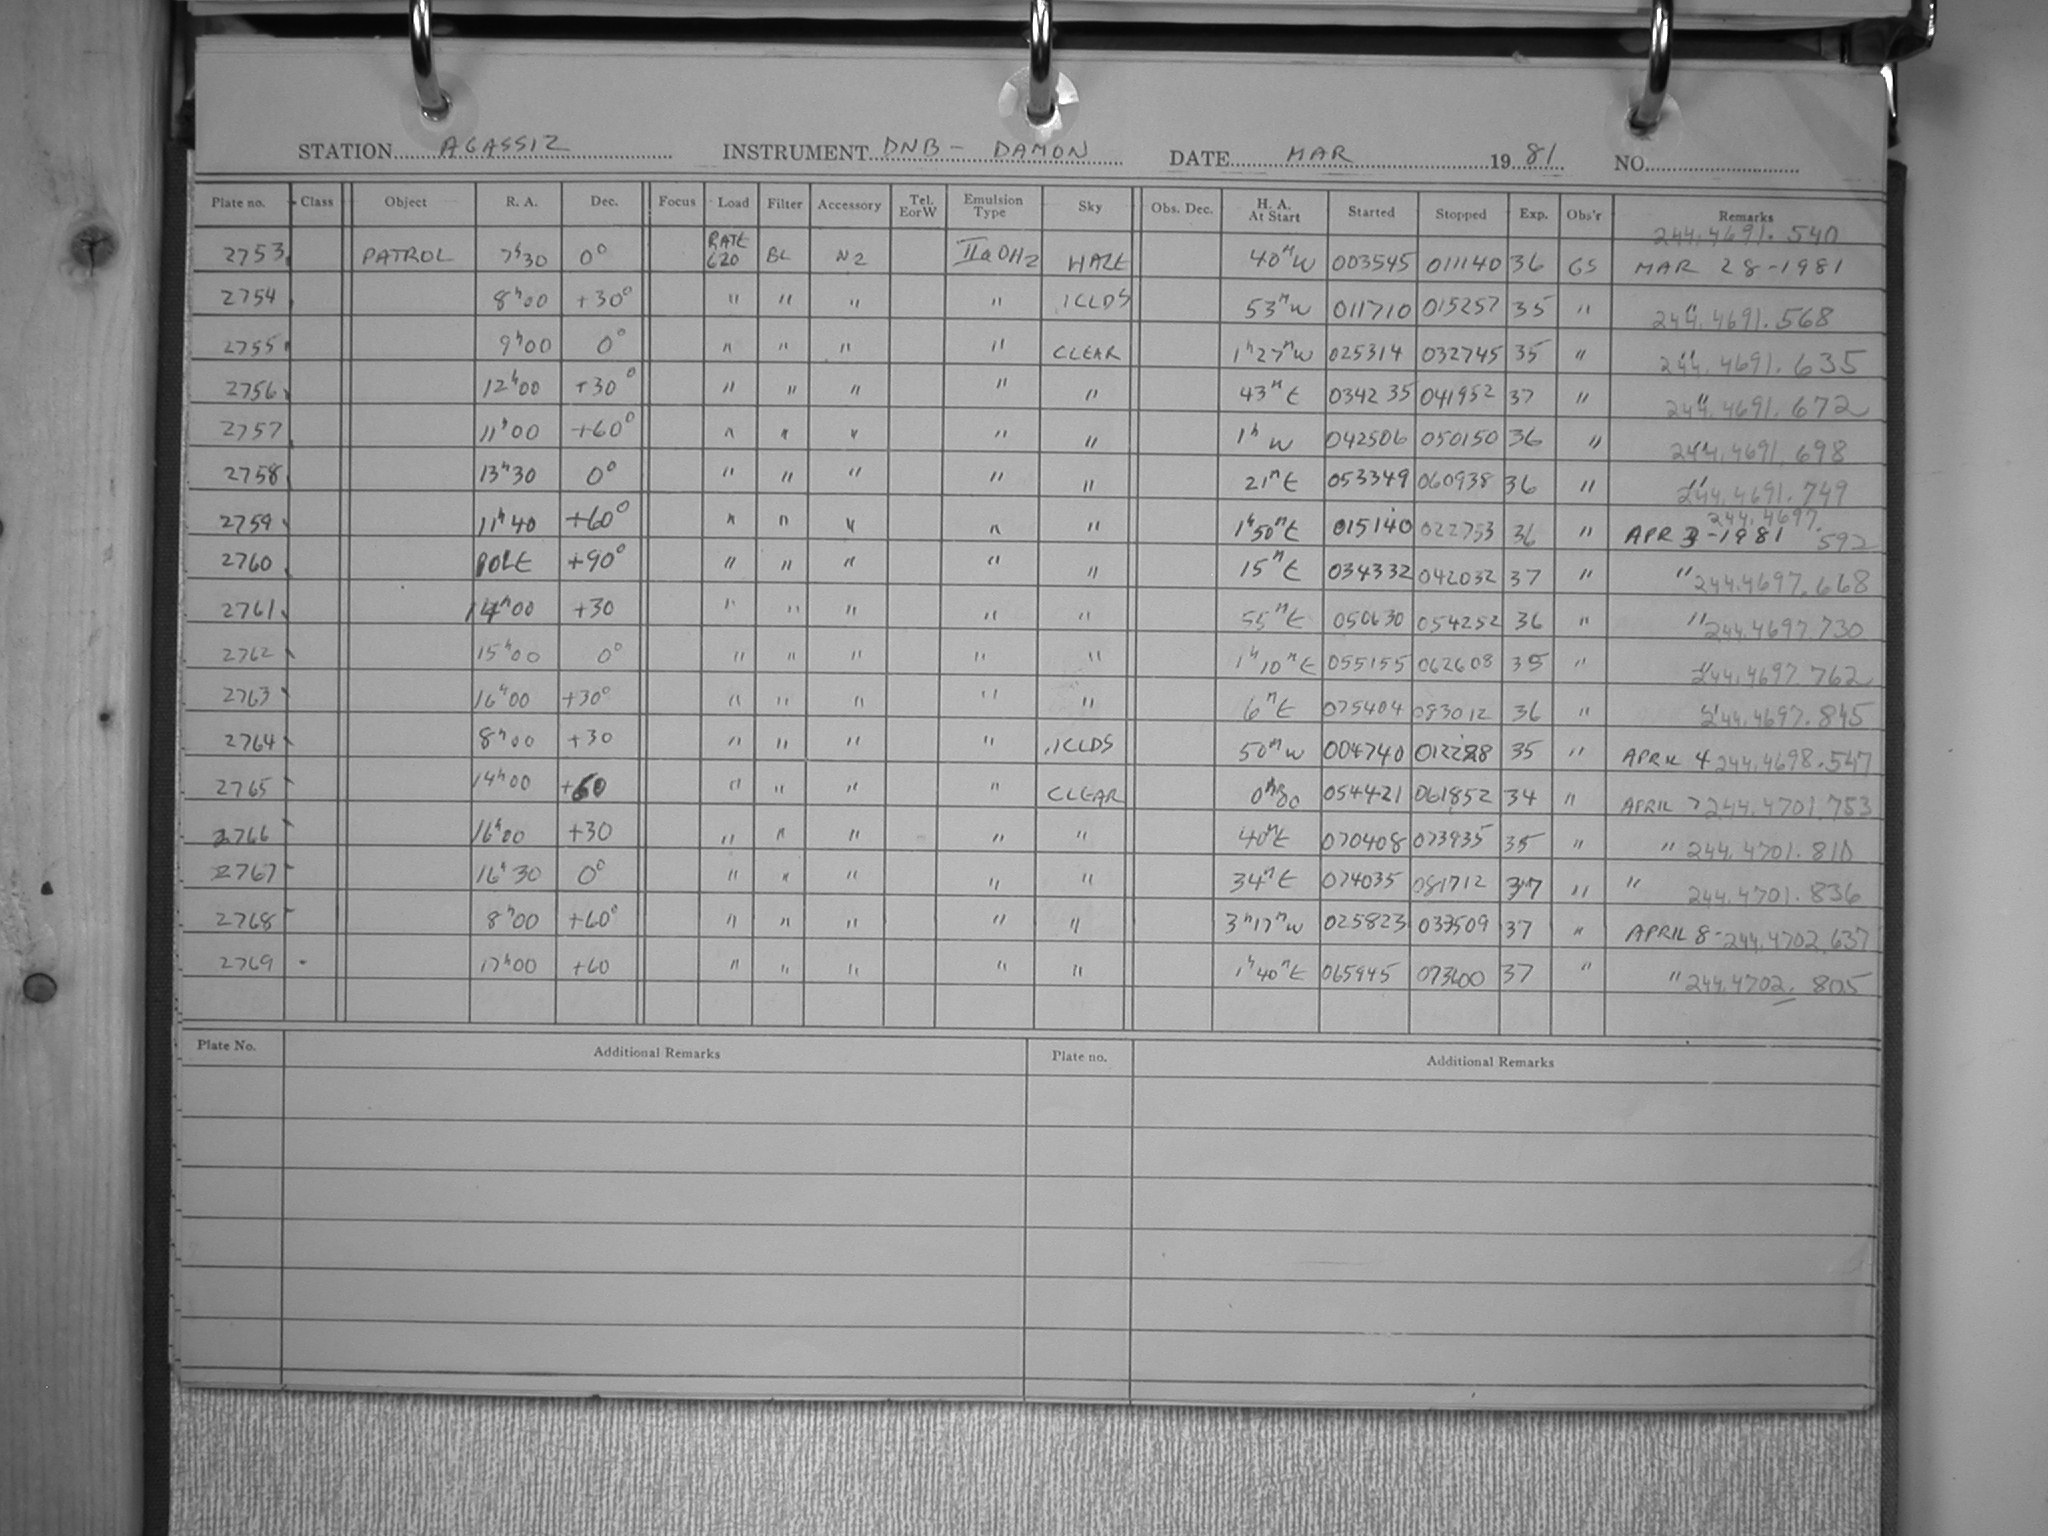 STATION AGASSIZ INSTRUMENT DNB - DAMON DATE MAR 1981 NO.
Plate no. Class Object R. A. Dec. Focus Load Filter Accessory Tel. EorW Emulsion Type Sky Obs. Dec. H. A. At Start Started Stopped Exp. Obs'r Remarks
244.4691.540
2753 PATROL 7h30 0° RATE 620 BL N2 IIaOH2 HAZE 40m W 003545 011140 36 GS MAR 28-1981
2754 8h00 +30° " " " " .1CLDS 53m W 011710 015257 35 " " 244.4691.568
2755 9h00 0° " " " " CLEAR 1h27m W 025314 032745 35 " " 244.4691.635
2756 12h00 +30° " " " " " 43m E 034235 041952 37 " " 244.4691.672
2757 11h00 +60° " " " " " 1h W 042506 050150 36 " " 244.4691.698
2758 13h30 0° " " " " " 21m E 053349 060938 36 " " 244.4691.749
2759 11h40 +60° " " " " " 1h50m E 015140 022753 36 " APR 3-1981 244.4697.592
2760 POLE +90° " " " " " 15m E 034332 042032 37 " " 244.4697.668
2761 14h00 +30 " " " " " 55m E 050630 054252 36 " " 244.4697.730
2762 15h00 0° " " " " " 1h10m E 055155 062608 35 " " 244.4697.762
2763 16h00 +30° " " " " " 6m E 075404 083012 36 " " 244.4697.845
2764 8h00 +30 " " " " .1CLDS 50m W 004740 012228 35 " APRIL 4 244.4698.547
2765 14h00 +60 " " " " CLEAR 0h00 054421 061852 34 " APRIL 7 244.4701.753
2766 16h00 +30 " " " " " 40m E 070408 073935 35 " " 244.4701.810
2767 16h30 0° " " " " " 34m E 074035 081712 37 " " 244.4701.836
2768 8h00 +60° " " " " " 3h17m W 025823 033509 37 " APRIL 8 - 244.4702.637
2769 17h00 +60 " " " " " 1h40m E 065945 073600 37 " " 244.4702.805
Plate No. Additional Remarks Plate no. Additional Remarks